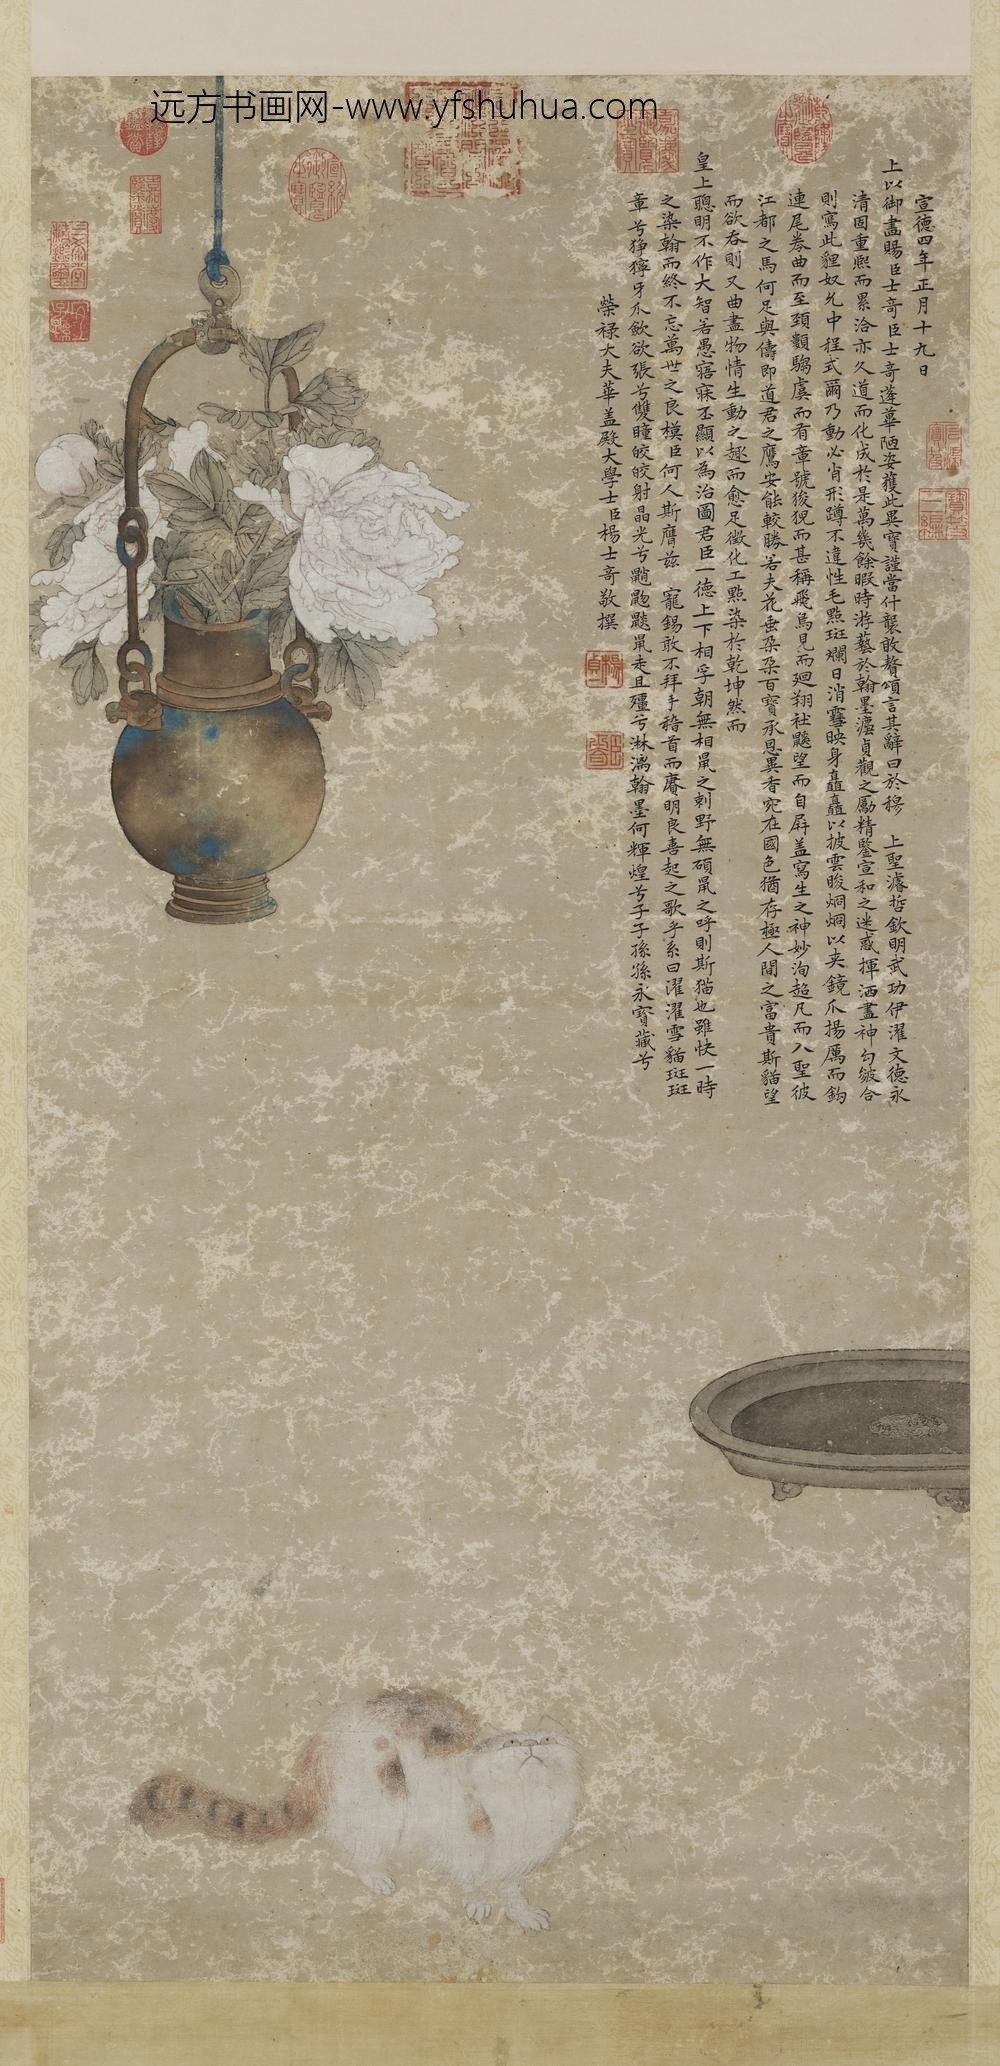 远方书画网-www.yfshuhua.com
宣德四年正月十九日
上以御畫賜臣士奇臣士奇蓬蓽陋姿獲此異寶謹當什襲敢贅頌言其辭曰於穆　上聖濬哲欽明武功伊濯文德永
清固重熙而累洽亦久道而化成於是萬幾餘暇時游藝於翰墨濡貞觀之勵精鑒宣和之迷惑揮洒盡神勾皴合
則寫此貍奴允中程式爾乃動必肖形蹲不違性毛點斑斕日消雪映身矗矗以披雲晙炯炯以夾鏡爪揚厲而鈎
連尾卷曲而至頸顴騶虞而有章號狻猊而甚稱飛鳥見而迴翔社鼷望而自屏盖寫生之神妙洵超凡而入聖彼
江都之馬何足與儔即道君之鷹安能較勝若夫花垂朶朶百寶承恩異香宛在國色猶存極人間之富貴斯貓望
而欲吞則又曲盡物情生動之趣而愈足徵化工點染於乾坤然而
皇上聰明不作大智若愚寤寐丕顯以為治圖君臣一德上下相孚朝無相鼠之刺野無碩鼠之呼則斯猫也雖快一時
之染翰而終不忘萬世之良模臣何人斯膺兹　寵錫敢不拜手稽首而賡明良喜起之歌乎系曰濯濯雪貓斑斑
章兮猙獰牙爪歛欲張兮雙瞳皎皎射晶光兮鼠走且殭兮淋漓翰墨何輝煌兮子子孫孫永寶藏兮
榮祿大夫華盖殿大學士臣楊士奇敬撰